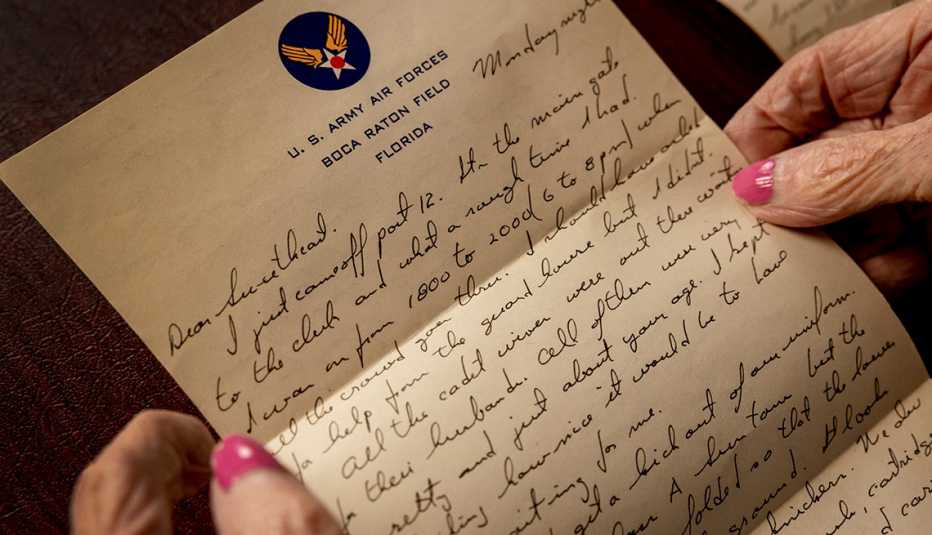 U. S. ARMY AIR FORCES
BOCA RATON FIELD
FLORIDA
Monday night
Dear Sweethead.
I just came off post 12. It's the main gate
to the club and what a rough time I had.
I was on from 1800 to 2000 (6 to 8 pm) when
all the crowd goes thru. I should have asked
for help from the guard house but I didn't.
All the cadet wives were out there
for their husbands. All of them were very
pretty and just about your age. I kept
how nice it would be to have
waiting for me.
get a kick out of our uniform.
A sun tan but the
folded so that the
ground. Looks